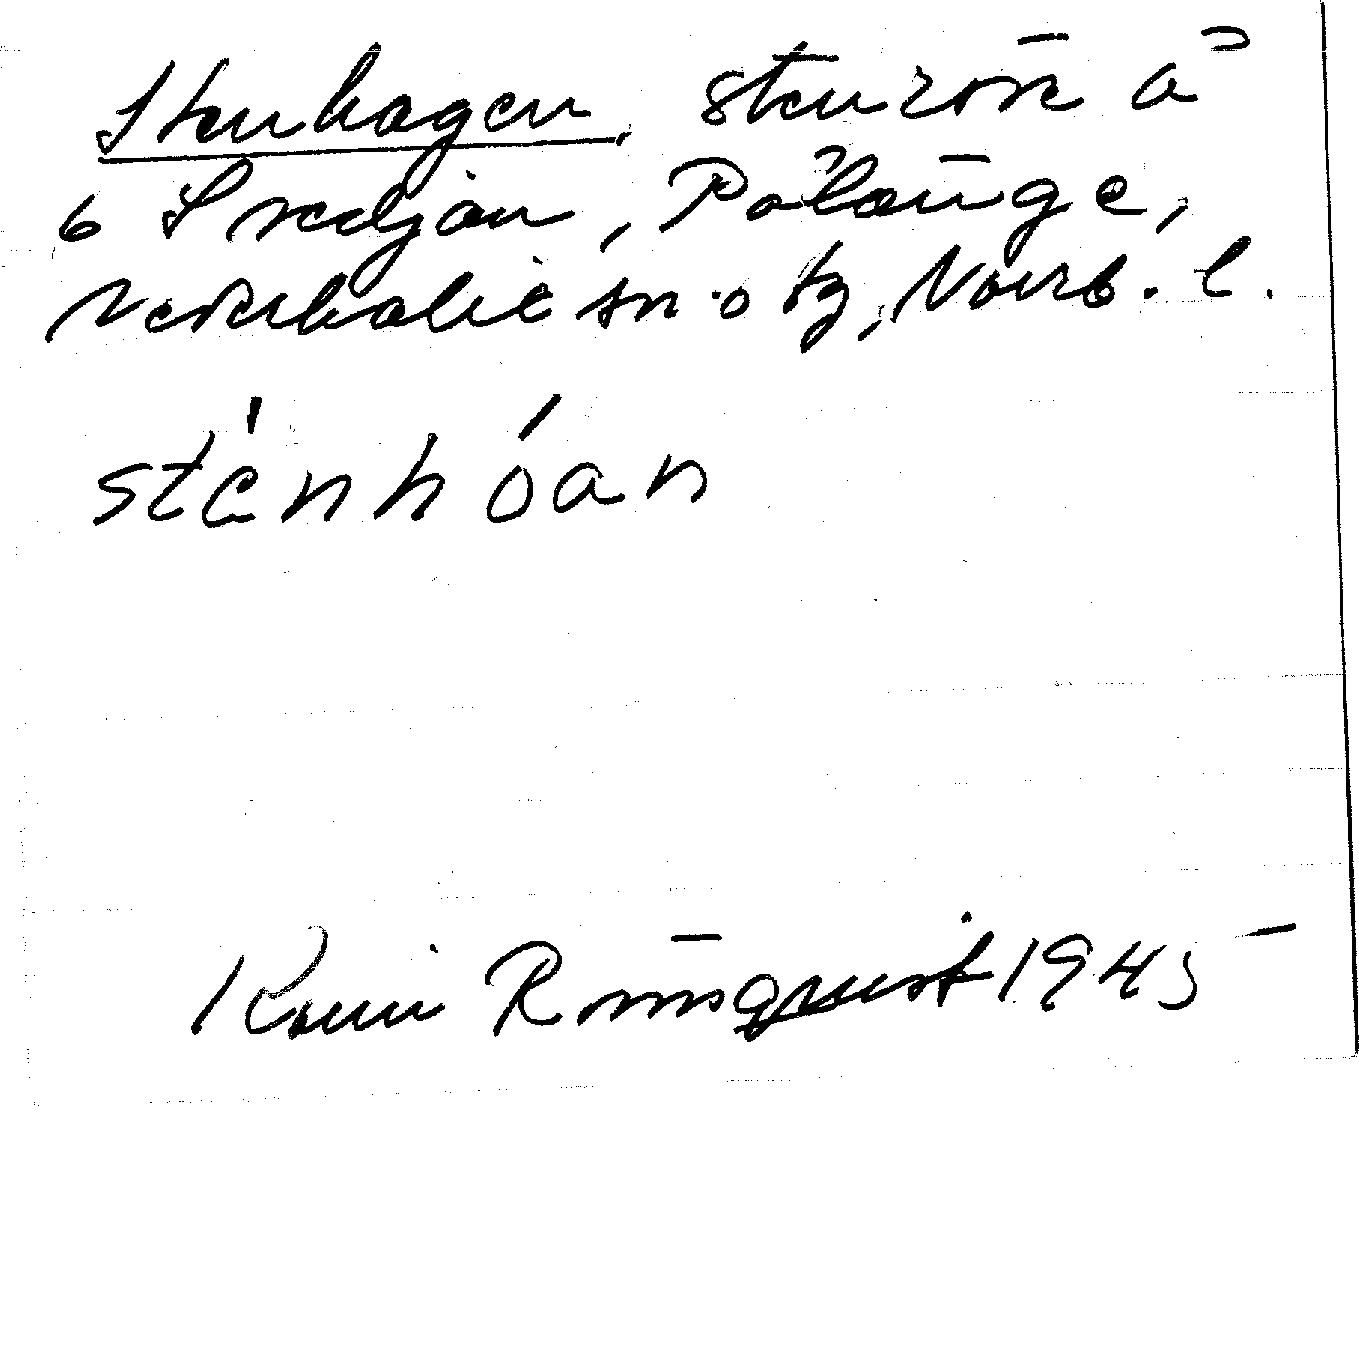 Stenhagen, stenröse å
6 Svedjan, Pålänge,
Nederkalix sn o tg, Norrb. l.
sténhóan
Karin Rönnqvist 1945